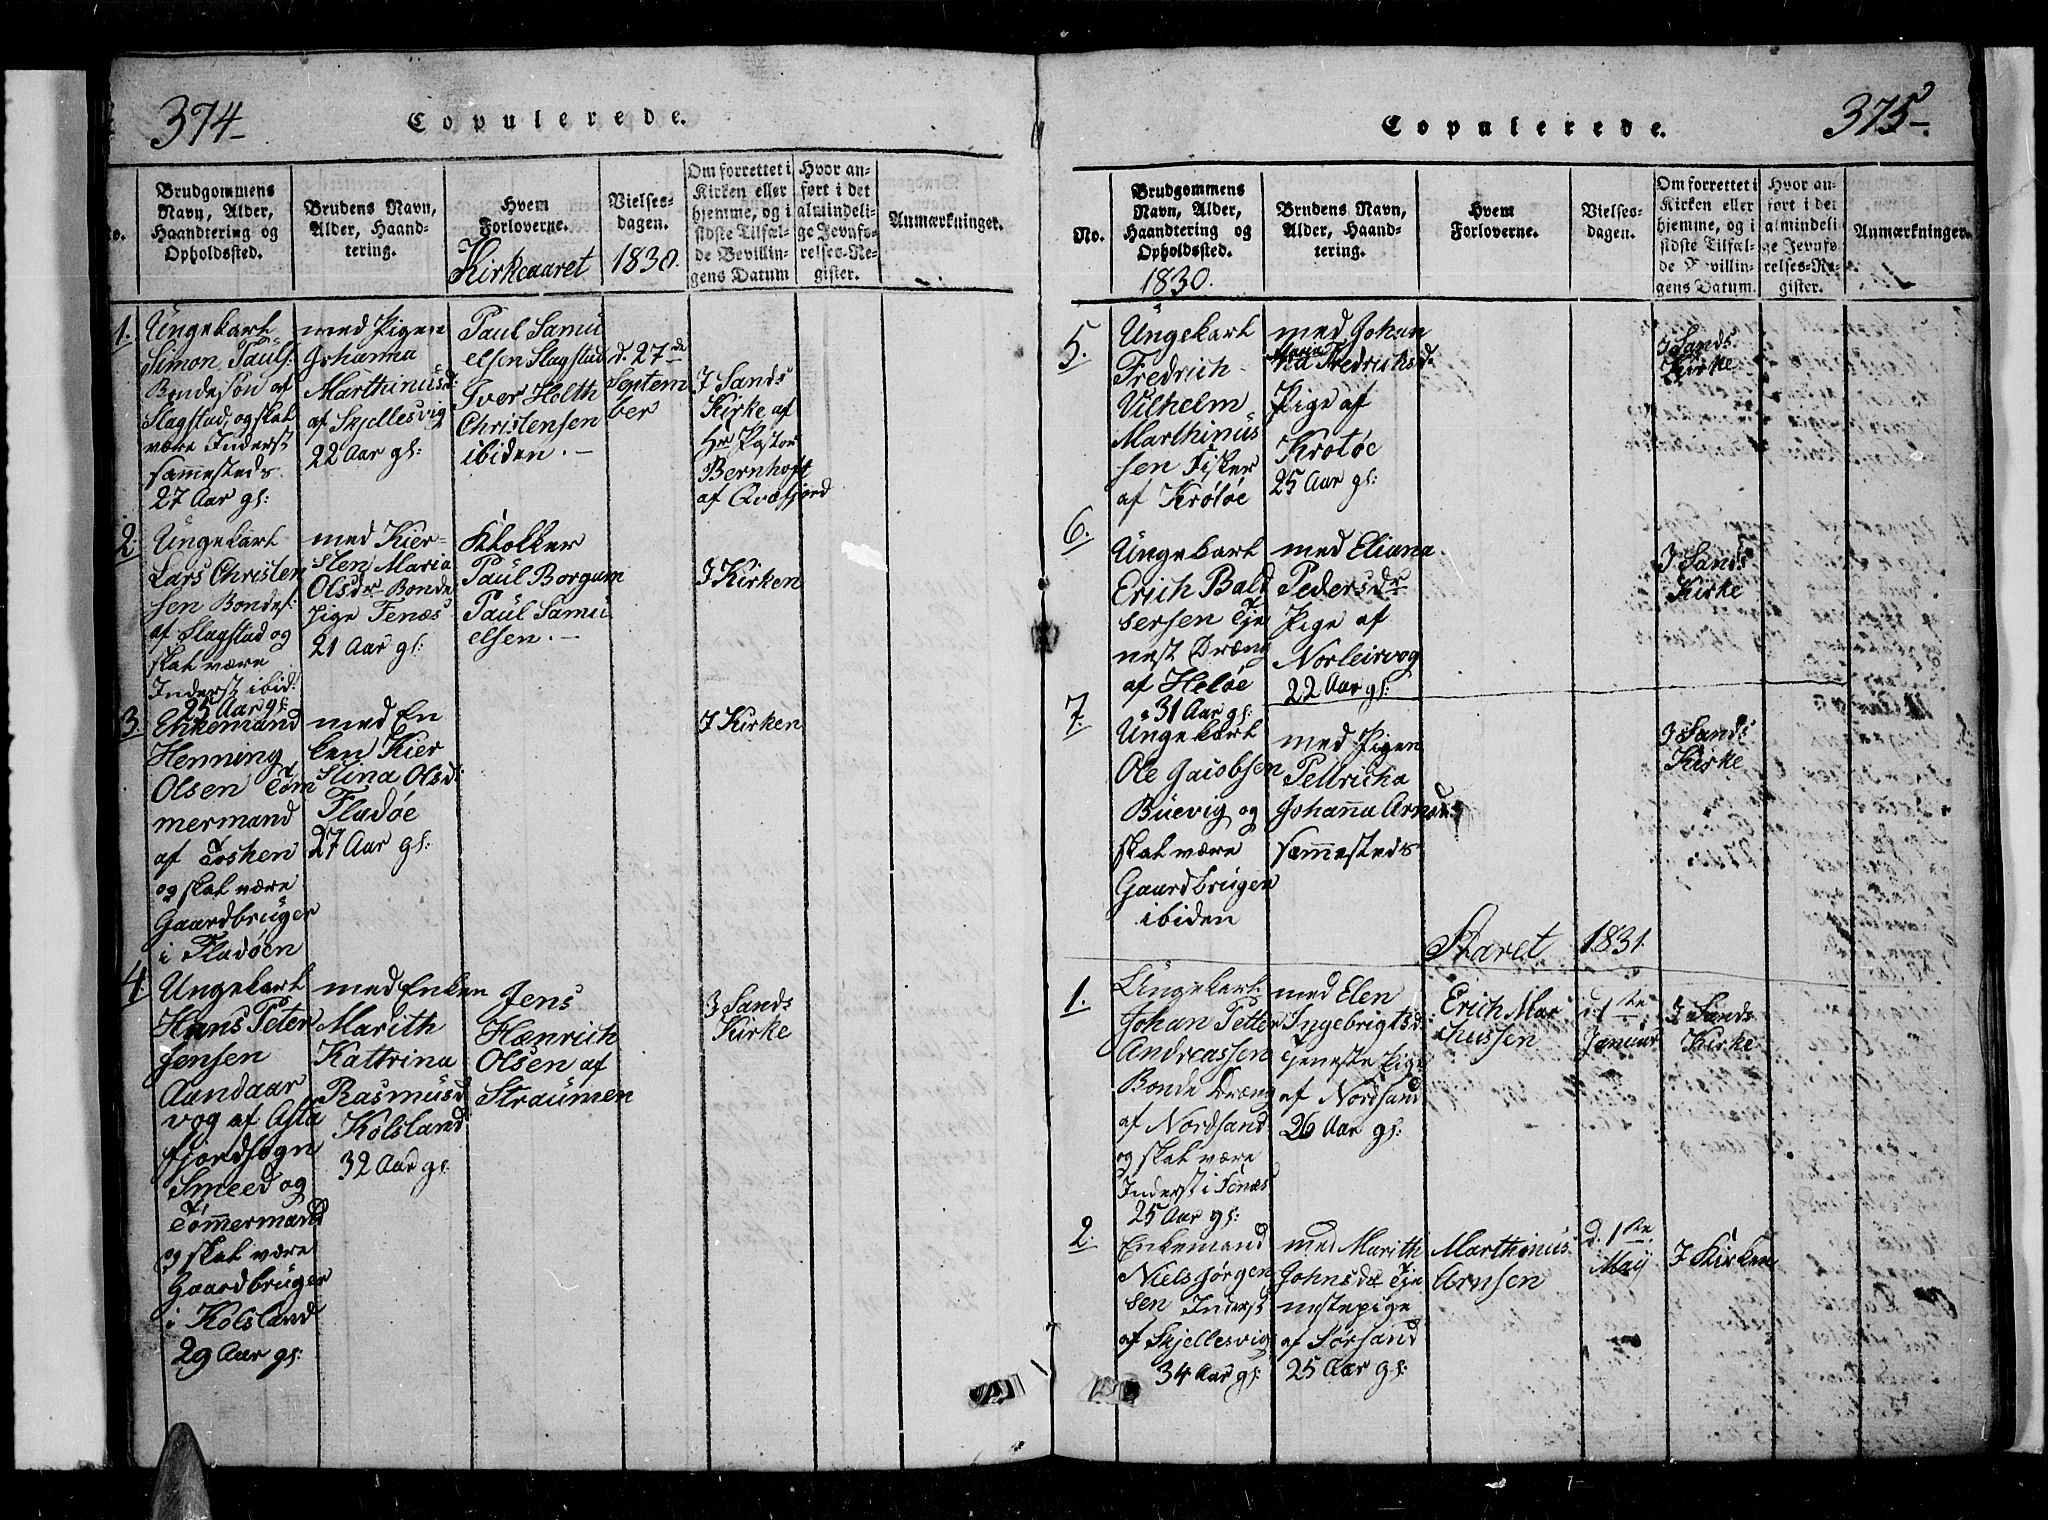 374
Copulerede.
No.
Brudgommens
Navn, Alder,
Haandtering og
Opholdssted.
Brudens Navn,
Alder, Haand-
tering.
Hvem
Forloverne.
Kirkeaaret
Vielses-
dagen.
1830.
Om forrettet i
Kirken eller
hjemme, og i
sidste Tilfæl-
de Bevillin-
gens Datum
Hvor an-
ført i det
almindeli-
ge Jevnfø-
relses-Re-
gister.
Anmærkninger.
1.
Ungekarl
Simon Pauls:
Bondesøn af
Slagstad, og skal
være Inderst
sammesteds
27 Aar gl:
med Pigen
Johanna
Marthinusd:
af Skjellesvig
22 Aar gl:
Paul Samu
elsen Slagstad
Iver Holth
Christensen
ibiden.
d. 27de
Septem
ber
I Sands
Kirke af
Hr Pastor
Bernhoft
af Qvæfjord
2.
Ungekarl
Lars Christen
sen Bondes:
af Slagstad og
skal være
Inderst ibid:
25 Aar gl:
med Kier-
sten Maria
Olsdr Bonde
Pige Fenæs
21 Aar gl:
Klokker
Paul Borgum
Paul Samu
elsen.
I Kirken
3.
Enkemand
Henning
Olsen Tøm
mermand
af Toshen
og skal være
Gaardbruger
i Fladøen
med En
ken Kier
stina Olsd:
Fladøe
27 Aar gl:
I Kirken
4
Ungekarl
Hans Peter
Jensen
Aandaar
vog af Asta
fjordsogn
Smeed og
Tømmermand
og skal være
Gaardbruger
i Kolsland
29 Aar gl:
med Enken
Marith
Kattrina
Rasmusd
Kolsland
32 Aar gl:
Jens
Hænrich
Olsen af
Straumen
I Sands
Kirke
375
Copulerede.
No.
Brudgommens
Navn, Alder,
Haandtering og
Opholdssted.
1830.
Brudens Navn,
Alder, Haand-
tering.
Hvem
Forloverne.
Vielses-
dagen.
Om forrettet i
Kirken eller
hjemme, og i
sidste Tilfæl-
de Bevillin-
gens Datum.
Hvor an-
ført i det
almindeli-
ge Jevnfø-
relses-Re-
gister.
Anmærkninger.
5.
Ungekarl
Fredrich
Vilhelm
Marthinus
sen Fisker
af Krøtøe
med Johan
Maria
na Fredrichsd
Pige af
Krotøe
25 Aar gl:
I Sands
Kirke
6.
Ungekarl
Erich Bald
sersen Tje
nest Dræng
af Heløe
31 Aar gl:
med Eliana
Pedersdr
Pige af
Norleirvog
22 Aar gl:
I Sands
Kirke
7.
Ungekarl
Ole Jacobsen
Buevig og
skal være
Gaardbrugen
ibiden
med Pigen
Pettricka
Johanna Arnsd:
sammesteds
I Sands
Kirke
Aaret 1831.
1.
Ungekarl
Johan Petter
Andreassen
Bonde Dræng
af Nordsand
og skal være
Inderst i Fenæs
25 Aar gl:
med Elen
Ingebrigtsd:
Tjeneste Pige
af Nordsand
26 Aar gl:
Erich Mar
chussen
d. 1te
Januar
I Sands
Kirke
2.
Enkemand
Niels Jørgen
sen Inderst
af Skjellesvig
34 Aar gl:
med Marith
Johnsdr Tje
nestepige
af Sørsand
25 Aar gl:
Marthinus
Arnsen
d. 1te
Maij
I Kirken